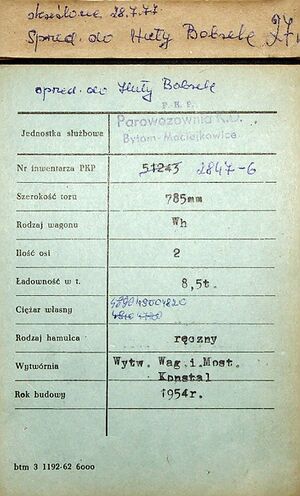 skreślono 28.7.77
Spred. do Huty Bobrek 27
spred. do Huty Bobrek
P. K. P.
Parowozownia K.D.
Jednostka służbowe
Bytom-Maciejkowice
Nr inwentarza PKP 51243 2847-6
Szerokość toru 785mm
Rodzaj wagonu Wh
Ilość osi 2
Ładowność w t. 8,5t.
Ciężar własny 4800 4820
Rodzaj hamulca ręczny
Wytwórnia Wytw. Wag.i.Most.
Konstal
Rok budowy 1954r.
btm 3 1192-62 6000